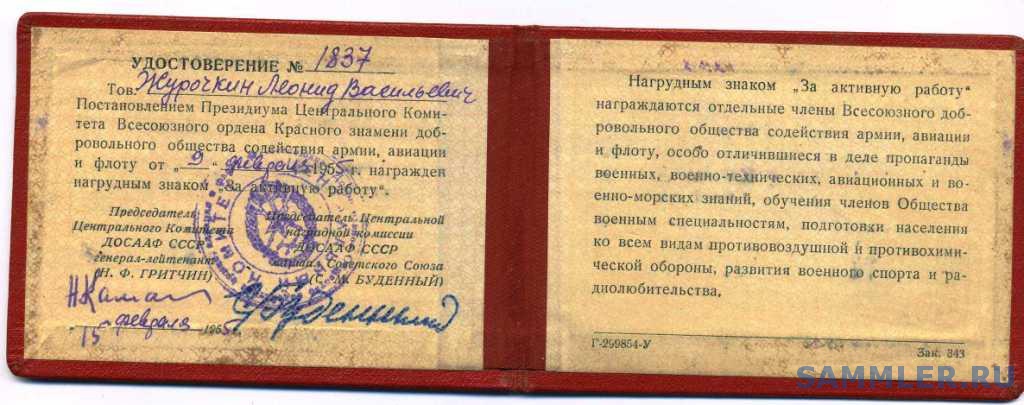 УДОСТОВЕРЕНИЕ № 1837
Тов. Журочкин Леонид Васильевич
Постановлением Президиума Центрального Коми-
тета Всесоюзного ордена Красного знамени доб-
ровольного общества содействия армии, авиации
и флоту от „9" февраля 1955 г. награжден
нагрудным знаком „За активную работу".
Председатель
Центрального Комитета
ДОСААФ СССР
генерал-лейтенант
(Н. Ф. ГРИТЧИН)
Председатель Центральной
наградной комиссии
ДОСААФ СССР
Маршал Советского Союза
(С. М. БУДЕННЫЙ)
15 февраля 1955
Нагрудным знаком „За активную работу"
награждаются отдельные члены Всесоюзного доб-
ровольного общества содействия армии, авиации
и флоту, особо отличившиеся в деле пропаганды
военных, военно-технических, авиационных и во-
енно-морских знаний, обучения членов Общества
военным специальностям, подготовки населения
ко всем видам противовоздушной и противохими-
ческой обороны, развития военного спорта и ра-
диолюбительства.
Г-299854-У
Зак. 343
SAMMLER.RU